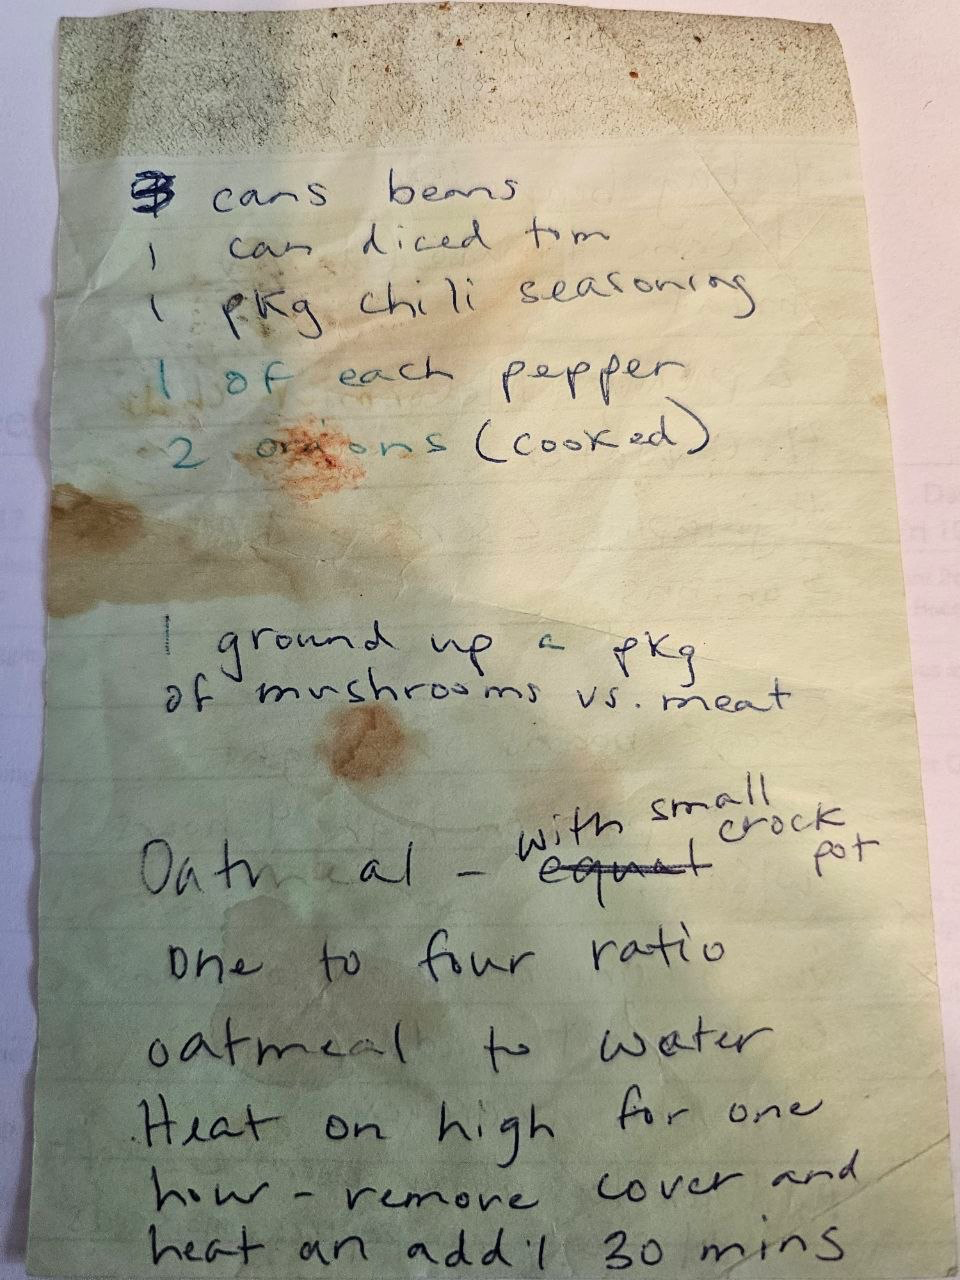 3 cans beans
1 can diced tom
1 pkg chili seasoning
1 of each pepper
2 onions (cooked)
1 ground up a pkg
of mushrooms vs. meat
Oatmeal - with small crock pot
equal
one to four ratio
oatmeal to water
Heat on high for one
hour - remove cover and
heat an add'l 30 mins